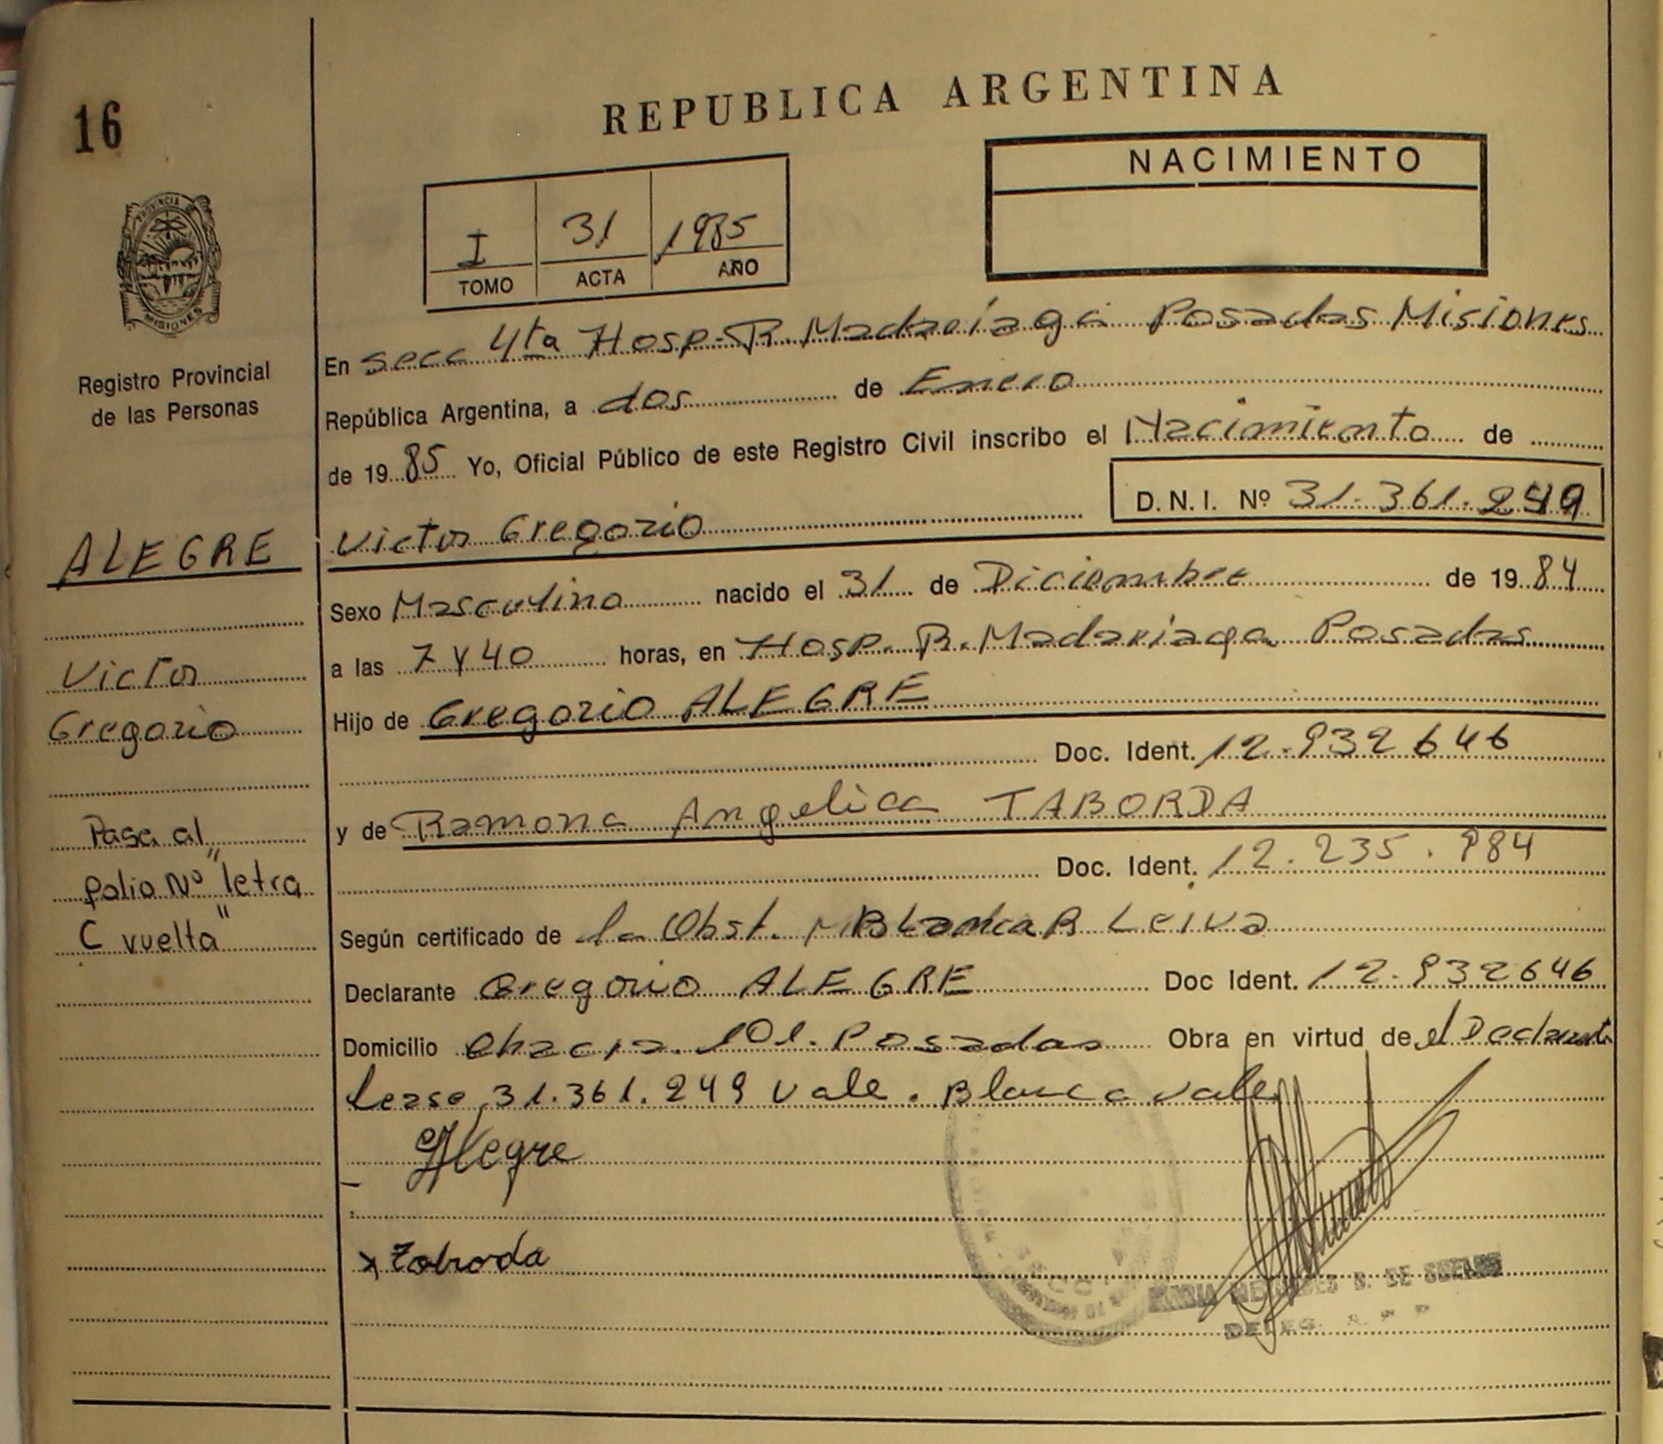 16
REPUBLICA ARGENTINA
NACIMIENTO
I 31 1985
TOMO ACTA AÑO
PROVINCIA DE
MISIONES
Registro Provincial
de las Personas
En secc 4ta Hosp. R. Madariaga Posadas Misiones
República Argentina, a dos de Enero
de 1985 Yo, Oficial Público de este Registro Civil inscribo el Nacimiento de
D.N.I. Nº 31.361.249
ALEGRE
Victor Gregorio
Sexo Masculino nacido el 31 de Diciembre de 1984
a las 7 y 40 horas, en Hosp. R. Madariaga Posadas
Victor
Gregorio
Hijo de Gregorio ALEGRE
Doc. Ident. 12.932646
y de Ramona Angelica TABORDA
Doc. Ident. 12.235.984
Pasa al
folio Nº "letra
C vuelta"
Según certificado de la Obst. Blanca R Leiva
Declarante Gregorio ALEGRE Doc Ident. 12.932646
Domicilio Chacra 101. Posadas Obra en virtud de el Declarante
Lease, 31.361.249 Vale. Blanca vale
Alegre
x Taborda
DE
DELEG.